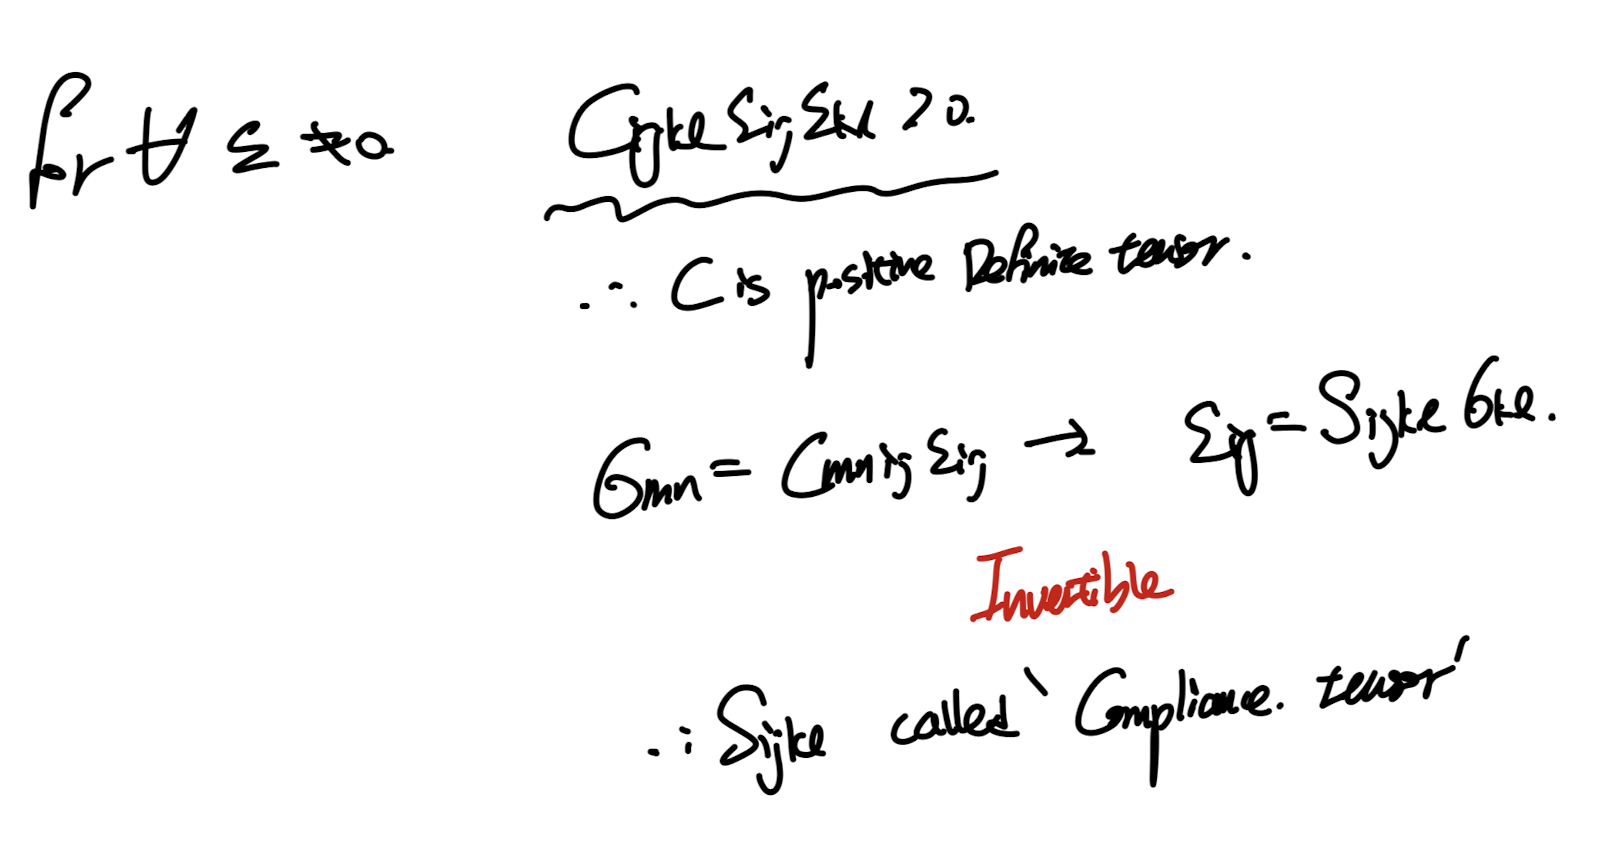 for ∀ ε ≠ 0. Cijkl εij εkl > 0.
∴ C is positive Definite tensor.
σmn = Cmnij εij → εij = Sijkl σkl.
Invertible
∴ Sijkl called `Compliance. tensor'